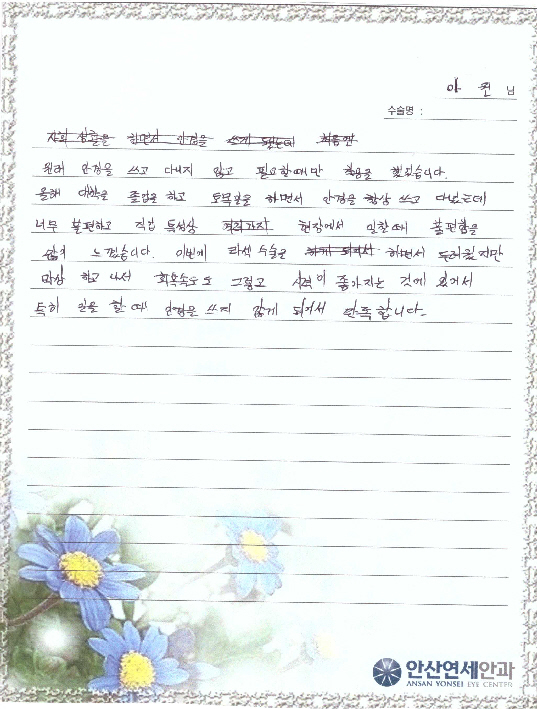 이 권 님
수술명 :
사회 생활을 하면서 안경을 쓰게 됐는데 처음엔
원래 안경을 쓰고 다니지 않고 필요할때만 착용을 했었습니다.
올해 대학을 졸업을 하고 토목일을 하면서 안경을 항상 쓰고 다녔는데
너무 불편하고 직업 특성상 현장에서 일할때 불편함을
많이 느꼈습니다. 이번에 라섹수술을 하게 되면서 하면서 두려웠지만
막상 하고 나서 회복속도도 그렇고 시력이 좋아지는 것에 있어서
특히 일을 할 때 안경을 쓰지 않게 되어서 만족합니다.
안산연세안과
ANSAN YONSEI EYE CENTER